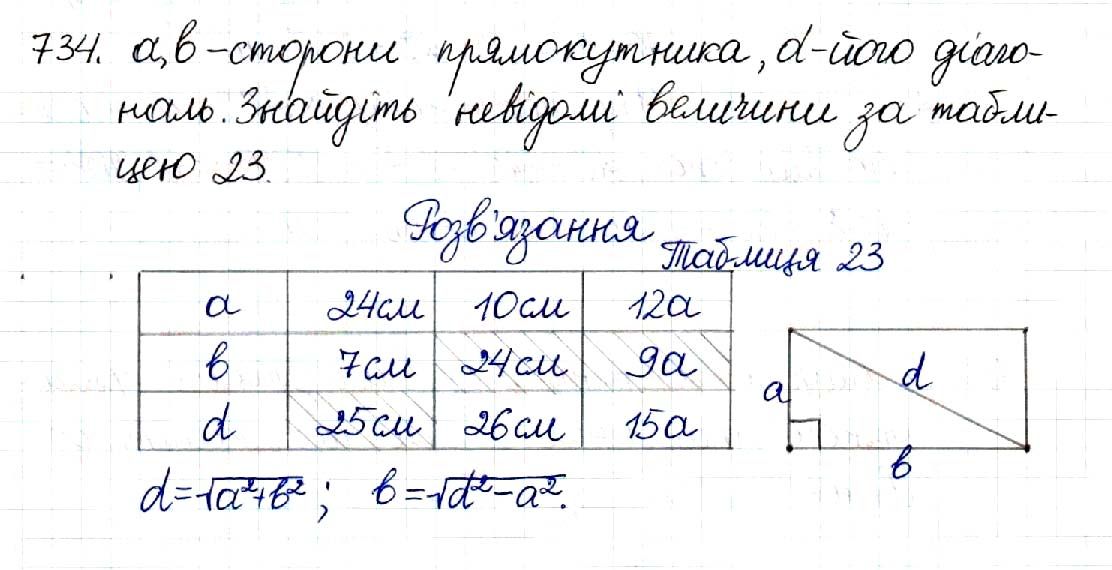 734. а,в-сторони прямокутника, d-його діаго-
наль. Знайдіть невідомі величини за табли-
цею 23.
Розв'язання
Таблиця 23
а 24см 10см 12а
в 7см 24см 9а
d 25см 26см 15а
а d в
d=√a²+в² ; в=√d²-a².